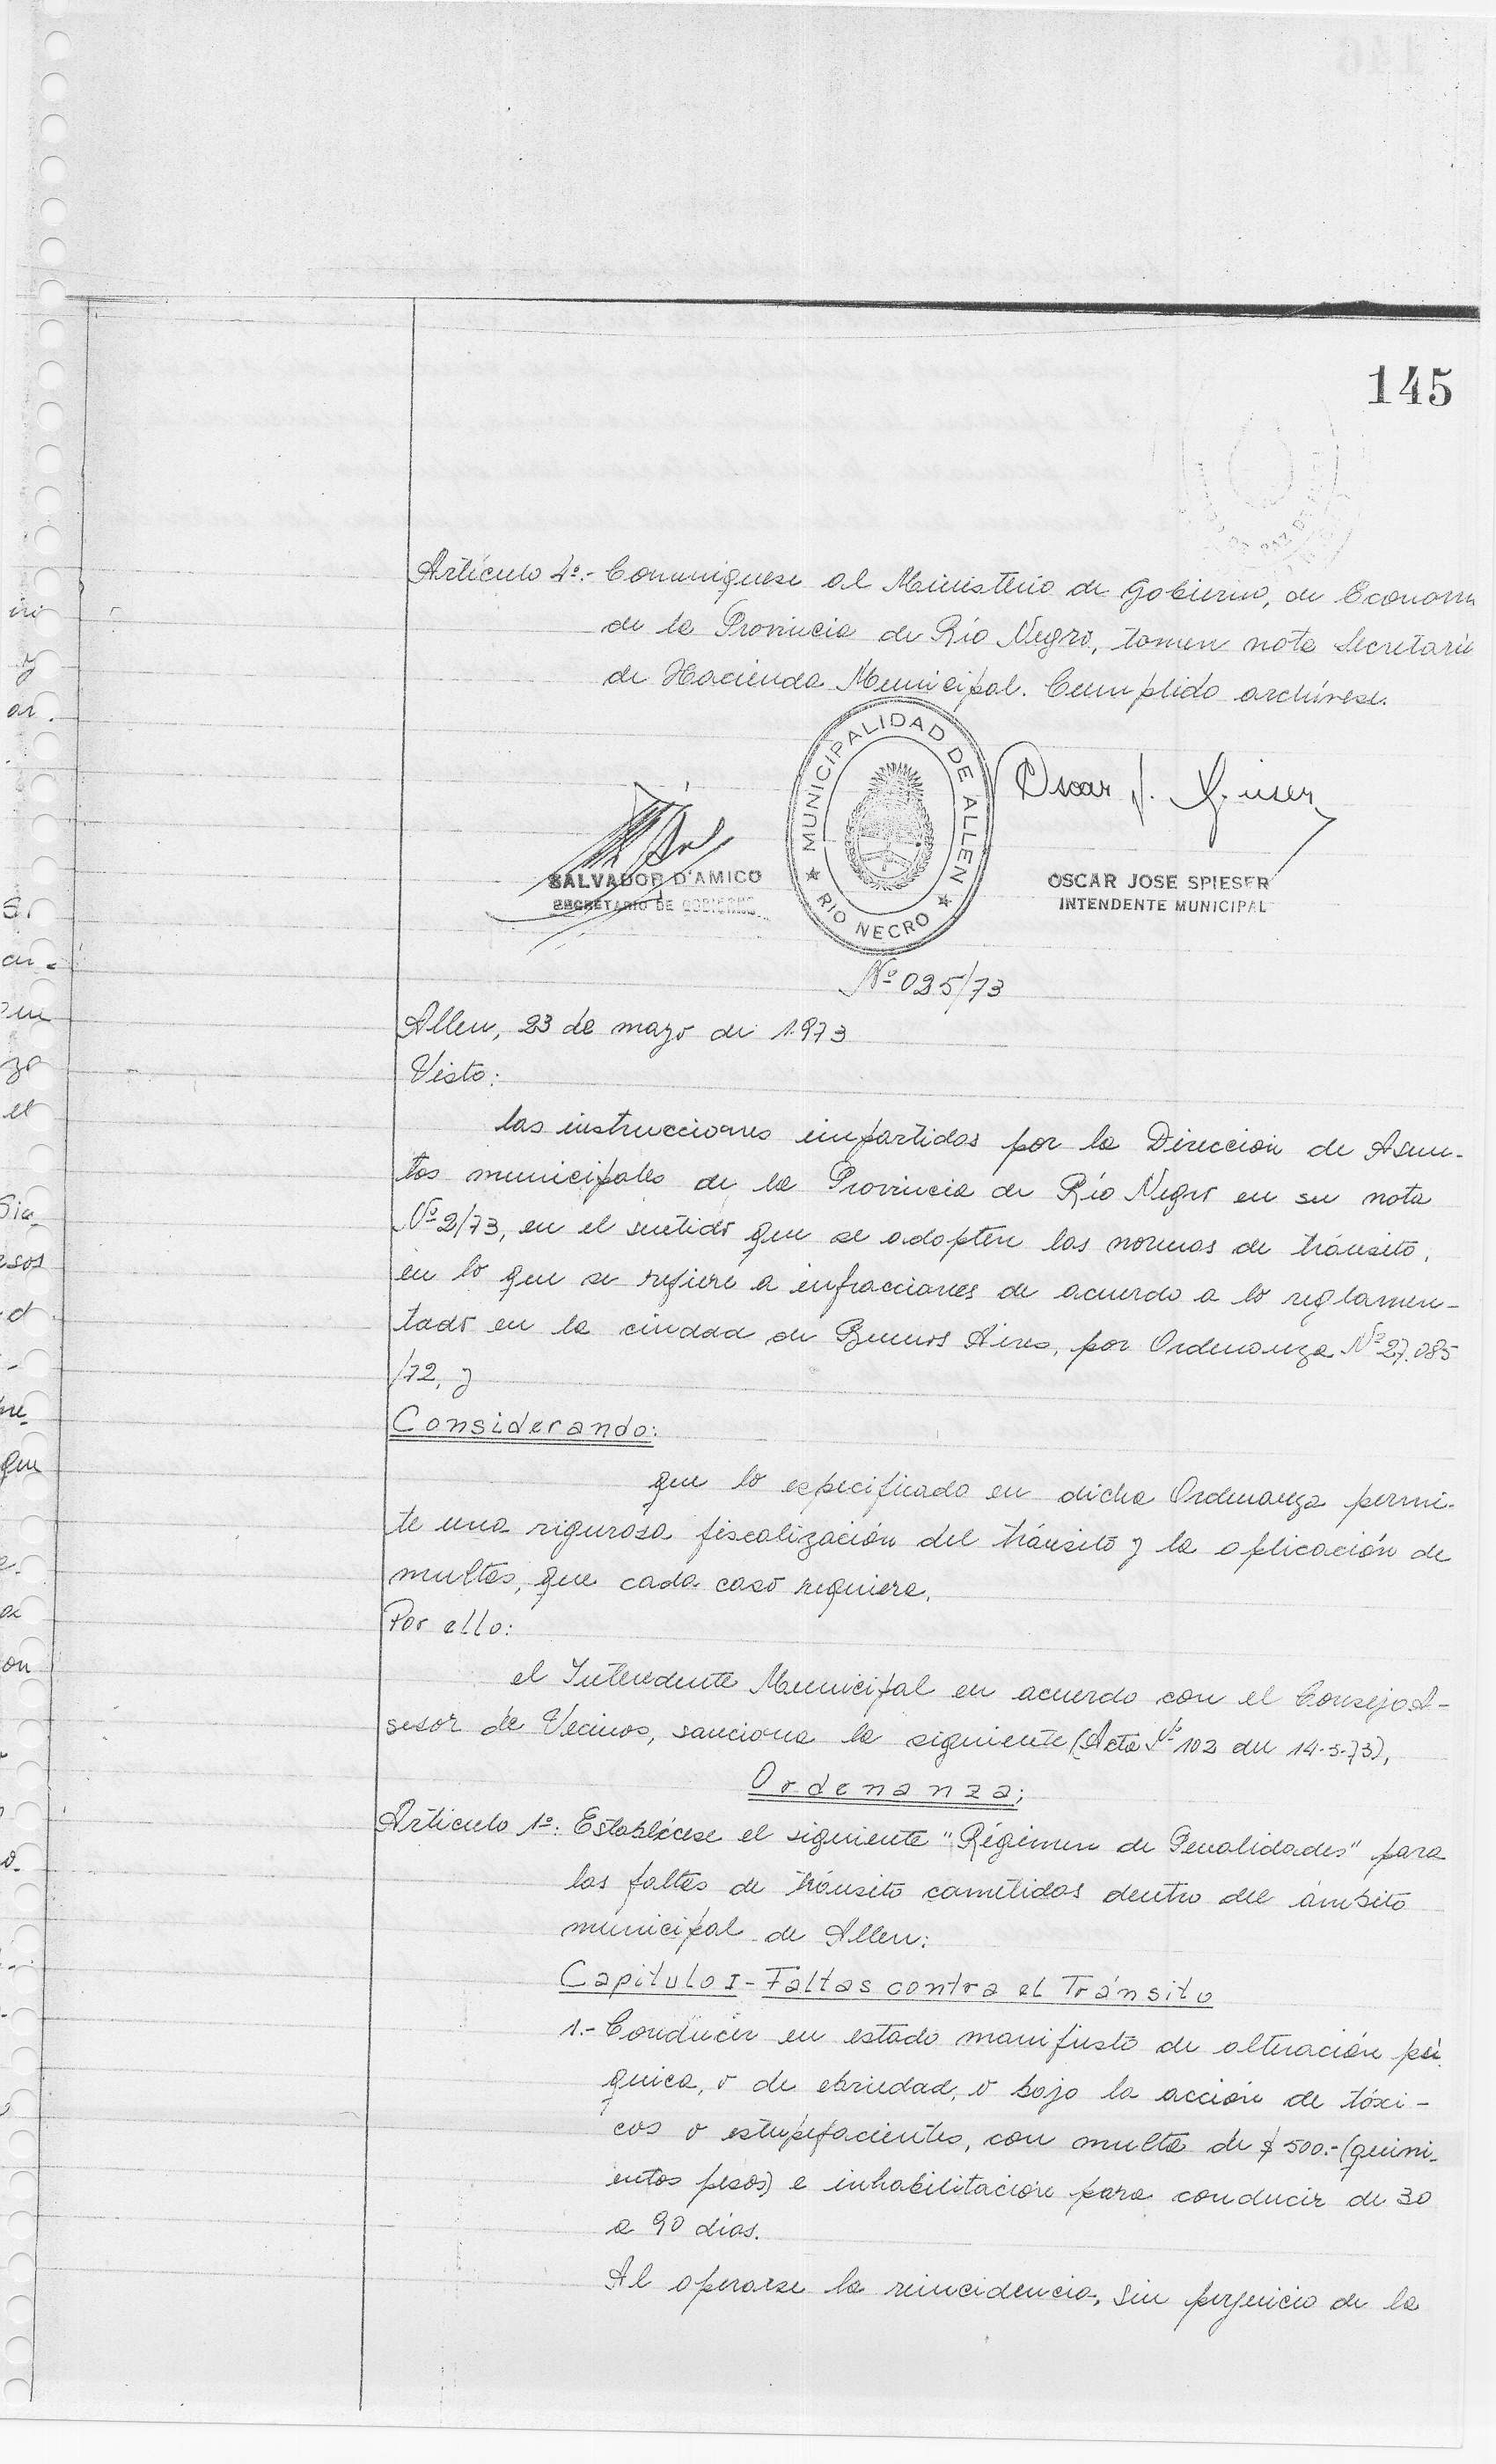 145
Artículo 4º.- Comuníquese al Ministerio de Gobierno, de Econom
de la Provincia de Río Negro, tomen nota Secretaría
de Hacienda Municipal. Cumplido archívese.
MUNICIPALIDAD DE ALLEN
RIO NEGRO
Oscar J. Spieser
SALVADOR D'AMICO
SECRETARIO DE GOBIERNO
OSCAR JOSE SPIESER
INTENDENTE MUNICIPAL
Nº 025/73
Allen, 23 de mayo de 1.973
Visto:
las instrucciones impartidas por la Dirección de Asun-
tos municipales de la Provincia de Río Negro en su nota
Nº 2/73, en el sentido que se adopten las normas de tránsito,
en lo que se refiere a infracciones de acuerdo a lo reglamen-
tado en la ciudad de Buenos Aires, por Ordenanza Nº 27.085
/72, y
Considerando:
que lo especificado en dicha Ordenanza permi-
te una rigurosa fiscalización del tránsito y la aplicación de
multas, que cada caso requiera.
Por ello:
el Intendente Municipal en acuerdo con el Consejo A-
sesor de Vecinos, sanciona la siguiente (Acta Nº 102 del 14-5-73),
Ordenanza;
Artículo 1º: Establécese el siguiente "Régimen de Penalidades" para
las faltas de tránsito cometidas dentro del ámbito
municipal de Allen:
Capítulo I - Faltas contra el Tránsito
1.- Conducir en estado manifiesto de alteración psí
quica, o de ebriedad, o bajo la acción de tóxi-
cos o estupefacientes, con multa de $ 500.- (quini-
entos pesos) e inhabilitación para conducir de 30
a 90 días.
Al operarse la reincidencia, sin perjuicio de la